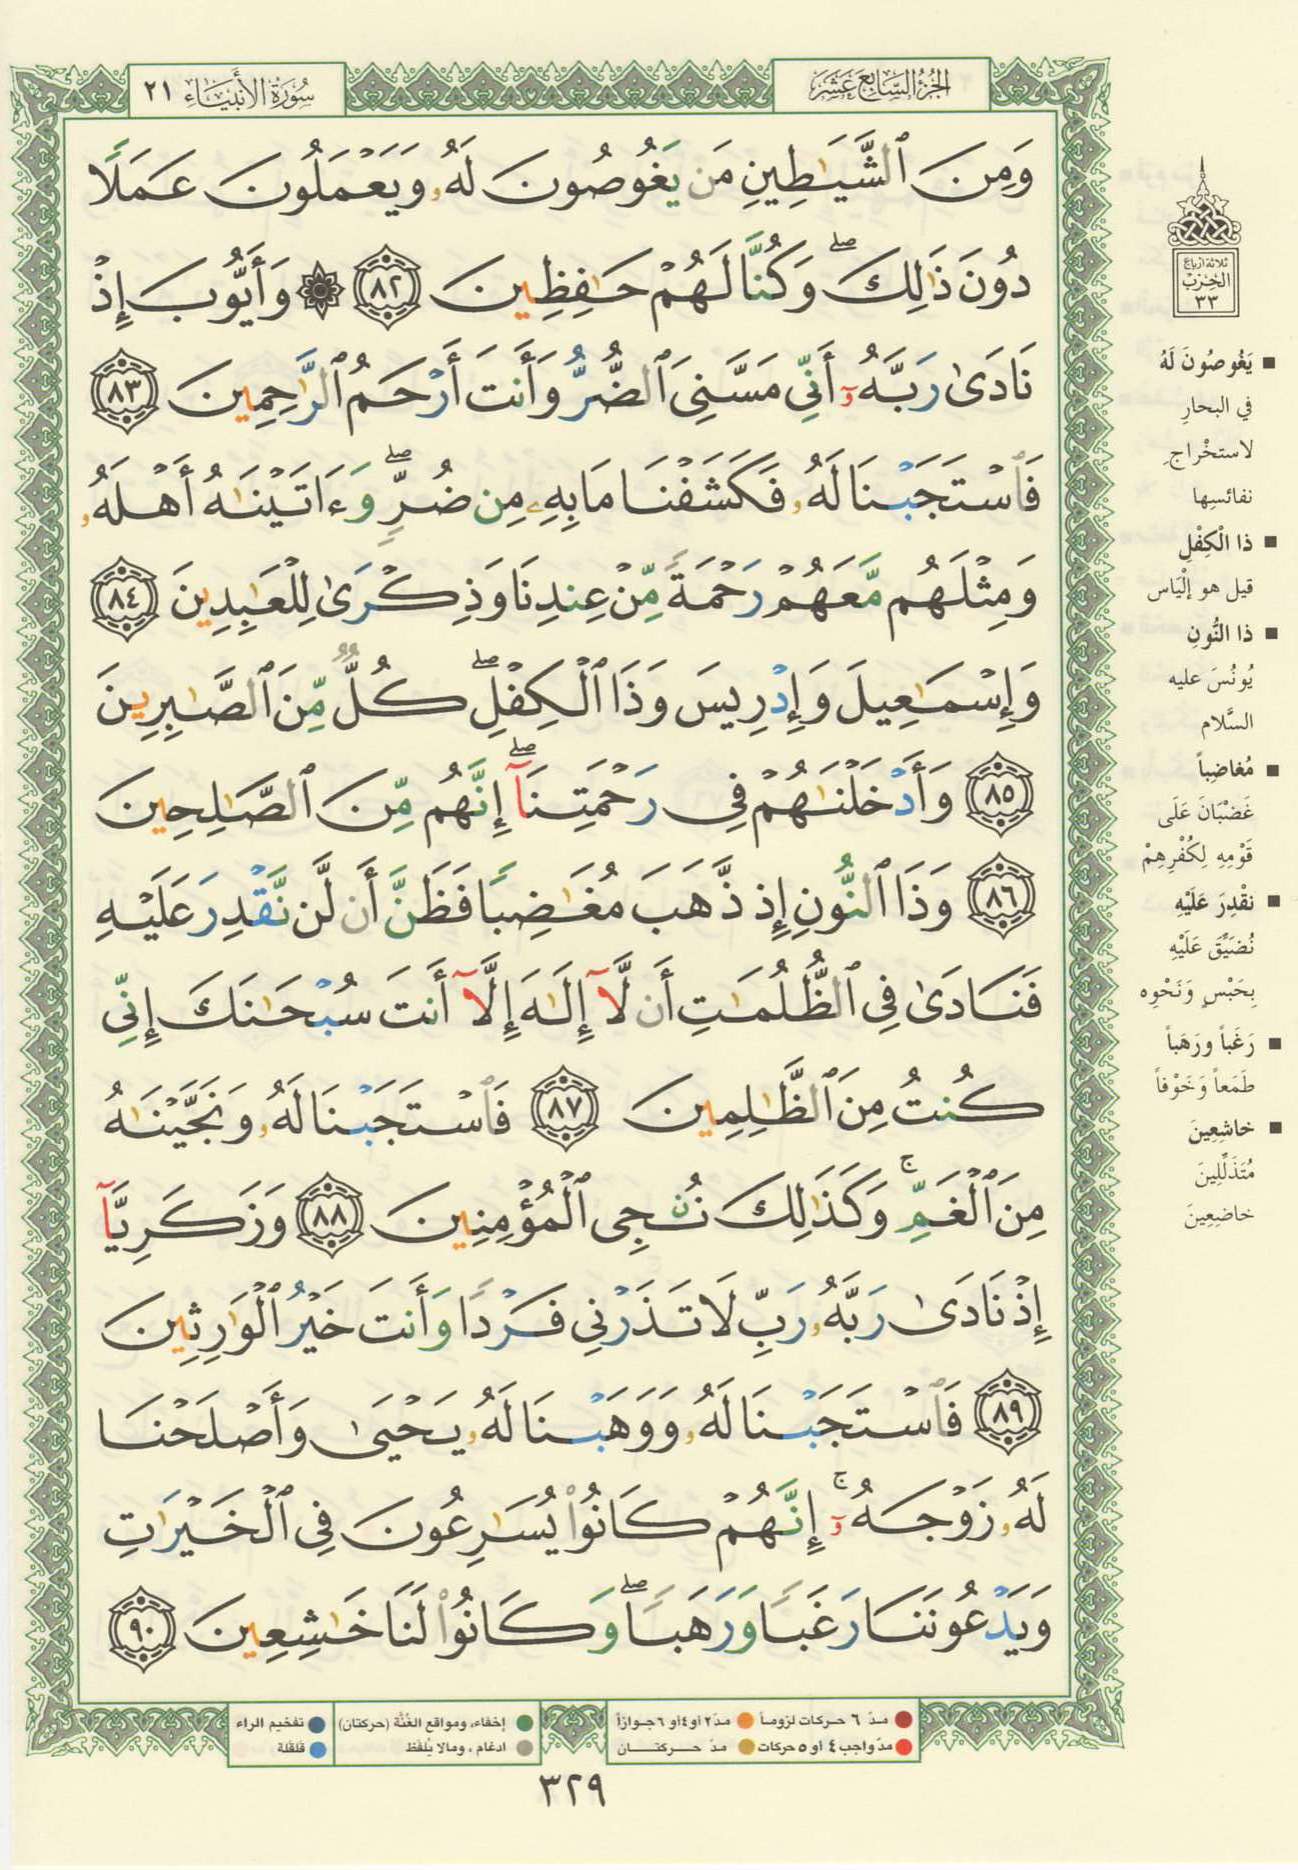 الجُزْءُ السَّابِعَ عَشَرَ
سُورَةُ الأَنبِيَاء ٢١
وَمِنَ ٱلشَّيَٰطِينِ مَن يَغُوصُونَ لَهُۥ وَيَعْمَلُونَ عَمَلًا
دُونَ ذَٰلِكَ ۖ وَكُنَّا لَهُمْ حَٰفِظِينَ ٨٢ ۞ وَأَيُّوبَ إِذْ
نَادَىٰ رَبَّهُۥٓ أَنِّى مَسَّنِىَ ٱلضُّرُّ وَأَنتَ أَرْحَمُ ٱلرَّٰحِمِينَ ٨٣
فَٱسْتَجَبْنَا لَهُۥ فَكَشَفْنَا مَا بِهِۦ مِن ضُرٍّ ۖ وَءَاتَيْنَٰهُ أَهْلَهُۥ
وَمِثْلَهُم مَّعَهُمْ رَحْمَةً مِّنْ عِندِنَا وَذِكْرَىٰ لِلْعَٰبِدِينَ ٨٤
وَإِسْمَٰعِيلَ وَإِدْرِيسَ وَذَا ٱلْكِفْلِ ۖ كُلٌّ مِّنَ ٱلصَّٰبِرِينَ
٨٥ وَأَدْخَلْنَٰهُمْ فِى رَحْمَتِنَآ ۖ إِنَّهُم مِّنَ ٱلصَّٰلِحِينَ
٨٦ وَذَا ٱلنُّونِ إِذ ذَّهَبَ مُغَٰضِبًا فَظَنَّ أَن لَّن نَّقْدِرَ عَلَيْهِ
فَنَادَىٰ فِى ٱلظُّلُمَٰتِ أَن لَّآ إِلَٰهَ إِلَّآ أَنتَ سُبْحَٰنَكَ إِنِّى
كُنتُ مِنَ ٱلظَّٰلِمِينَ ٨٧ فَٱسْتَجَبْنَا لَهُۥ وَنَجَّيْنَٰهُ
مِنَ ٱلْغَمِّ ۚ وَكَذَٰلِكَ نُۨجِى ٱلْمُؤْمِنِينَ ٨٨ وَزَكَرِيَّآ
إِذْ نَادَىٰ رَبَّهُۥ رَبِّ لَا تَذَرْنِى فَرْدًا وَأَنتَ خَيْرُ ٱلْوَٰرِثِينَ
٨٩ فَٱسْتَجَبْنَا لَهُۥ وَوَهَبْنَا لَهُۥ يَحْيَىٰ وَأَصْلَحْنَا
لَهُۥ زَوْجَهُۥٓ ۚ إِنَّهُمْ كَانُوا۟ يُسَٰرِعُونَ فِى ٱلْخَيْرَٰتِ
وَيَدْعُونَنَا رَغَبًا وَرَهَبًا ۖ وَكَانُوا۟ لَنَا خَٰشِعِينَ ٩٠
ثلاثة أرباع
الحِزْبْ
٣٣
■ يَغُوصُونَ لَهُ
في البحارِ
لاستخْراجِ
نفائسِها
■ ذا الْكِفْلِ
قيل هو إلْيَاس
■ ذا النُّونِ
يُونُسَ عليه
السَّلام
■ مُغاضِباً
غَضْبَانَ عَلَى
قَوْمِهِ لِكُفْرِهِمْ
■ نَقْدِرَ عَلَيْهِ
نُضَيِّقَ عَلَيْهِ
بِحَبْسٍ وَنَحْوِه
■ رَغَباً ورَهَباً
طَمَعاً وَخَوْفاً
■ خاشِعِينَ
مُتَذَلِّلِينَ
خاضِعِينَ
مدّ ٦ حركات لزوماً ● مدّ ٢ او ٤ او ٦ جوازاً
مدّ واجب ٤ او ٥ حركات ● مدّ حركتان
إخفاء، ومواقع الغُنَّة (حركتان) ● تفخيم الراء
ادغام ، ومالا يُلفَظ ● قلقلة
٣٢٩